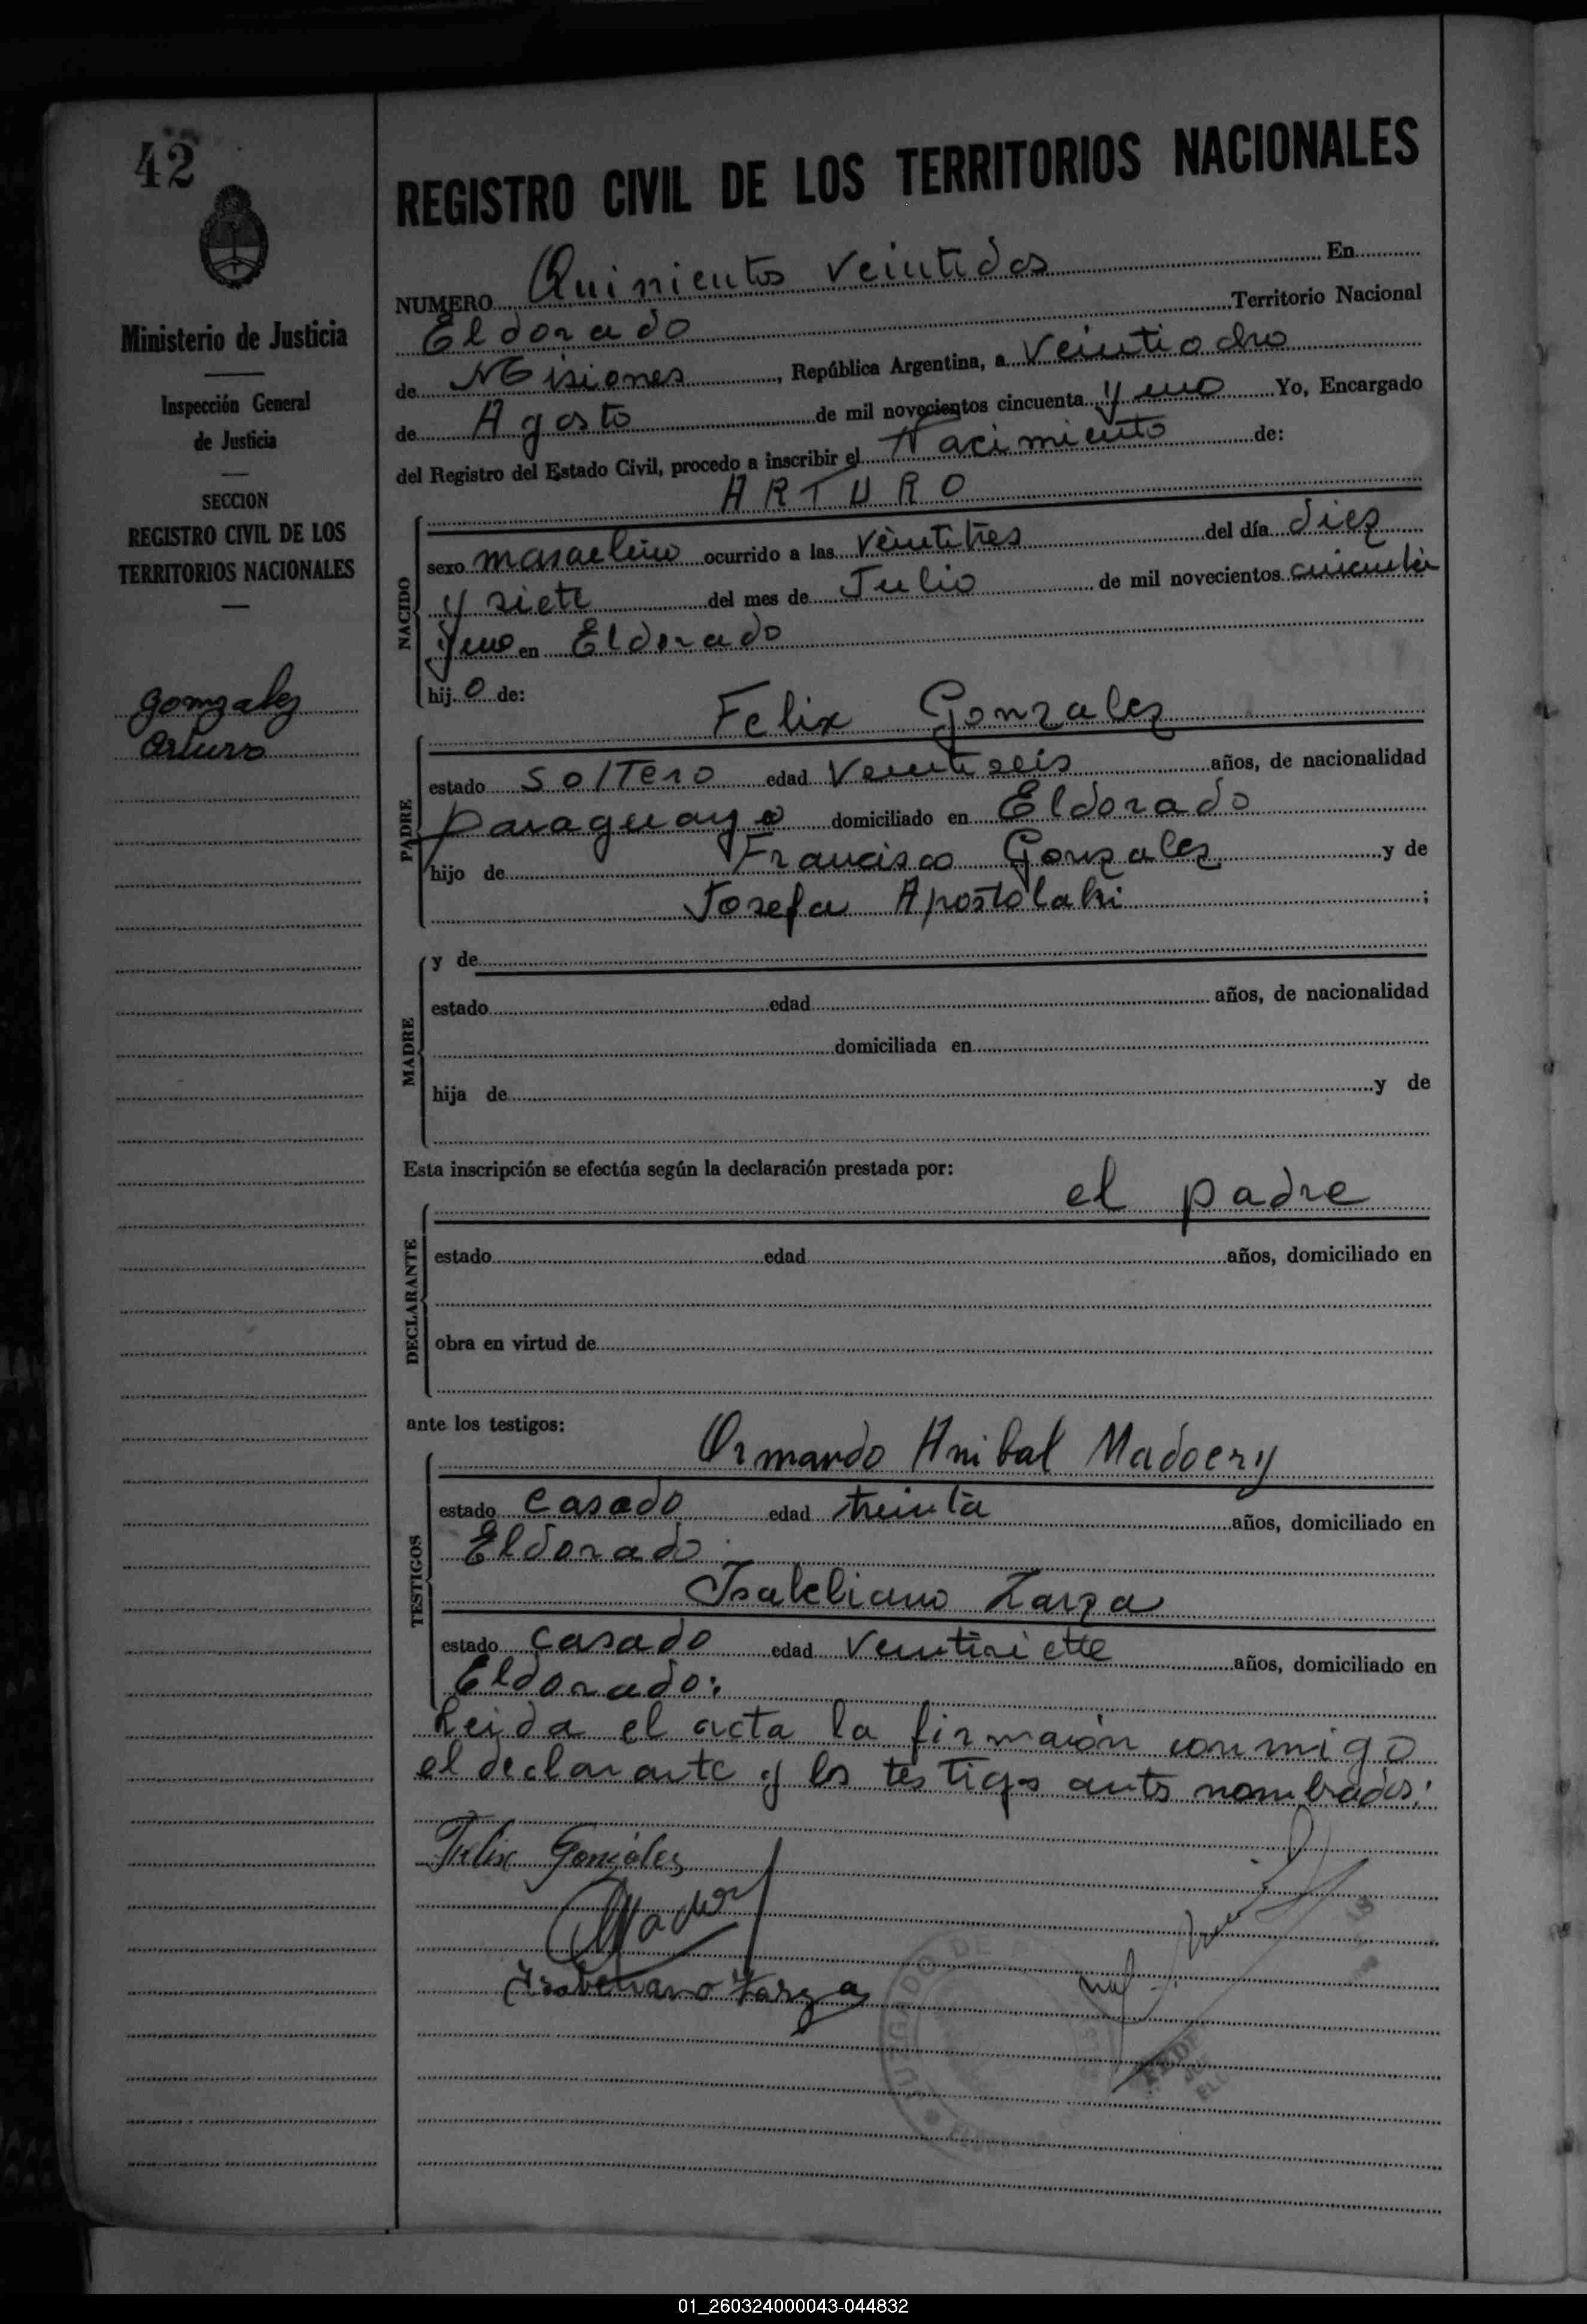 42
Ministerio de Justicia
Inspección General
de Justicia
SECCION
REGISTRO CIVIL DE LOS
TERRITORIOS NACIONALES
Gonzalez
Arturo
REGISTRO CIVIL DE LOS TERRITORIOS NACIONALES
NUMERO Quinientos veintidos En
Eldorado Territorio Nacional
de Misiones, República Argentina, a Veintiocho
de Agosto de mil novecientos cincuenta y uno Yo, Encargado
del Registro del Estado Civil, procedo a inscribir el Nacimiento de:
ARTURO
NACIDO
sexo masculino ocurrido a las veintitres del día diez
y siete del mes de Julio de mil novecientos cincuenta
y uno en Eldorado
hijo de:
Felix Gonzalez
PADRE
estado soltero edad Veintiseis años, de nacionalidad
paraguayo domiciliado en Eldorado
hijo de Francisco Gonzalez y de
Josefa Apostolaki;
MADRE
y de
estado edad años, de nacionalidad
domiciliada en
hija de y de
Esta inscripción se efectúa según la declaración prestada por:
el padre
DECLARANTE
estado edad años, domiciliado en
obra en virtud de
ante los testigos:
TESTIGOS
Ormando Anibal Madoery
estado casado edad treinta años, domiciliado en
Eldorado
Isabeliano Zarza
estado casado edad veintisiette años, domiciliado en
Eldorado:
Leida el acta la firmaron conmigo
el declarante y los testigos antes nombrados:
Felix Gonzalez
Isabeliano Zarza
JUZGADO DE
01_260324000043-044832